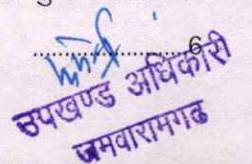 6
उपखण्ड अधिकारी
जमवारामगढ